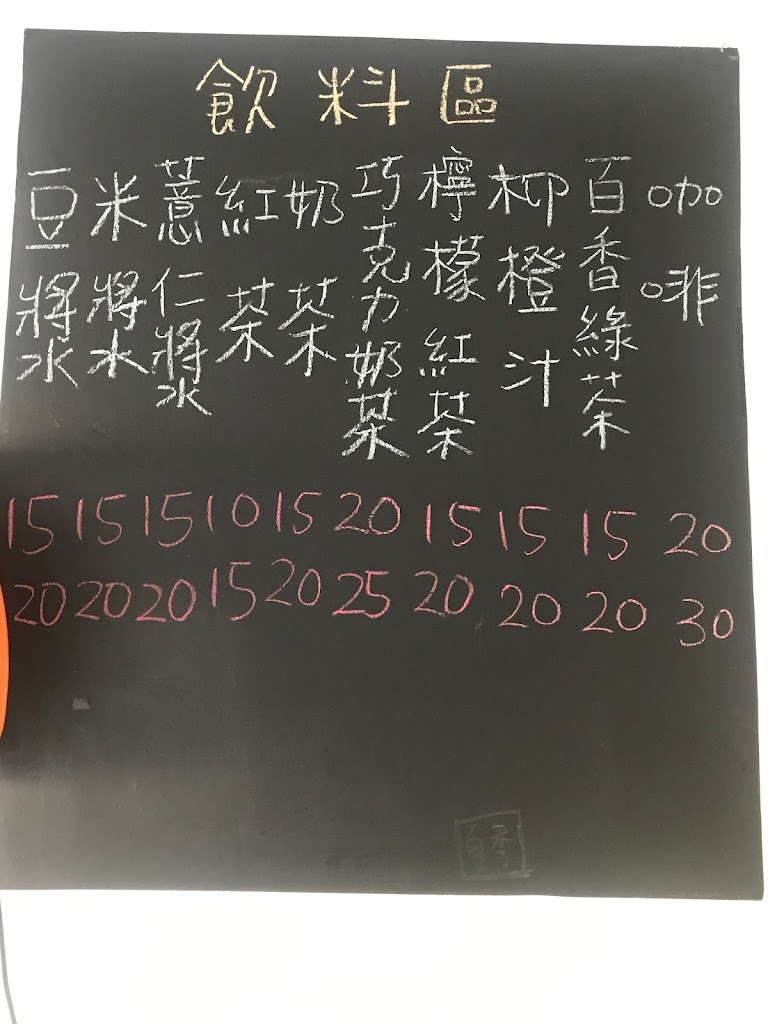 飲料區
豆漿
米漿
薏仁漿
紅茶
奶茶
巧克力奶茶
檸檬紅茶
柳橙汁
百香綠茶
咖啡
15 15 15 10 15 20 15 15 15 20
20 20 20 15 20 25 20 20 20 30